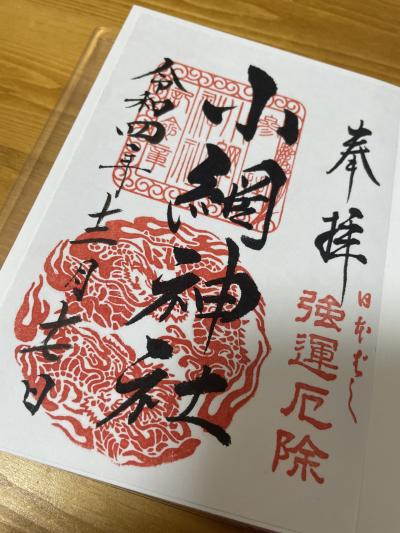 奉拝
日本ばし
強運厄除
小網神社
令和四年十二月十七日